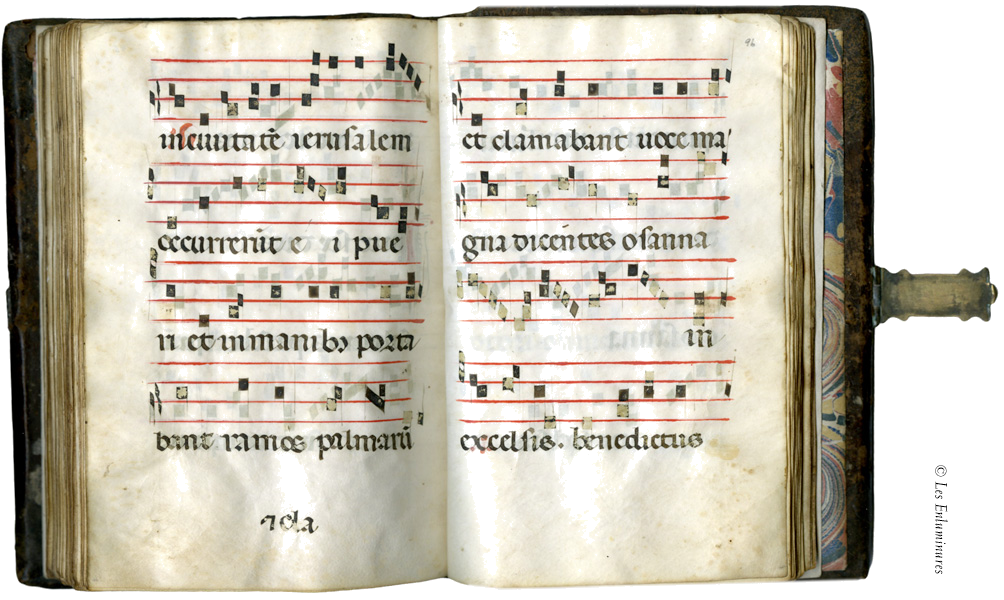 in civitatē ierusalem
occurrerūt e i pue
ri et in manibꝯ porta
bant ramos palmarū
⁊ cla
96
et clamabant uoce ma
gna dicentes osanna
in
excelsis. benedictus
© Les Enluminures